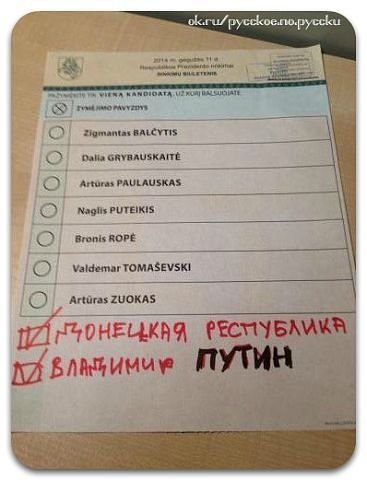 ok.ru/русское.по.русски
2014 m. gegužės 11 d.
Respublikos Prezidento rinkimai
RINKIMŲ BIULETENIS
PAŽYMĖKITE TIK VIENĄ KANDIDATĄ, UŽ KURĮ BALSUOJATE
ŽYMĖJIMO PAVYZDYS
Zigmantas BALČYTIS
Dalia GRYBAUSKAITĖ
Artūras PAULAUSKAS
Naglis PUTEIKIS
Bronis ROPĖ
Valdemar TOMAŠEVSKI
Artūras ZUOKAS
ДОНЕЦКАЯ РЕСПУБЛИКА
ВЛАДИМИР ПУТИН